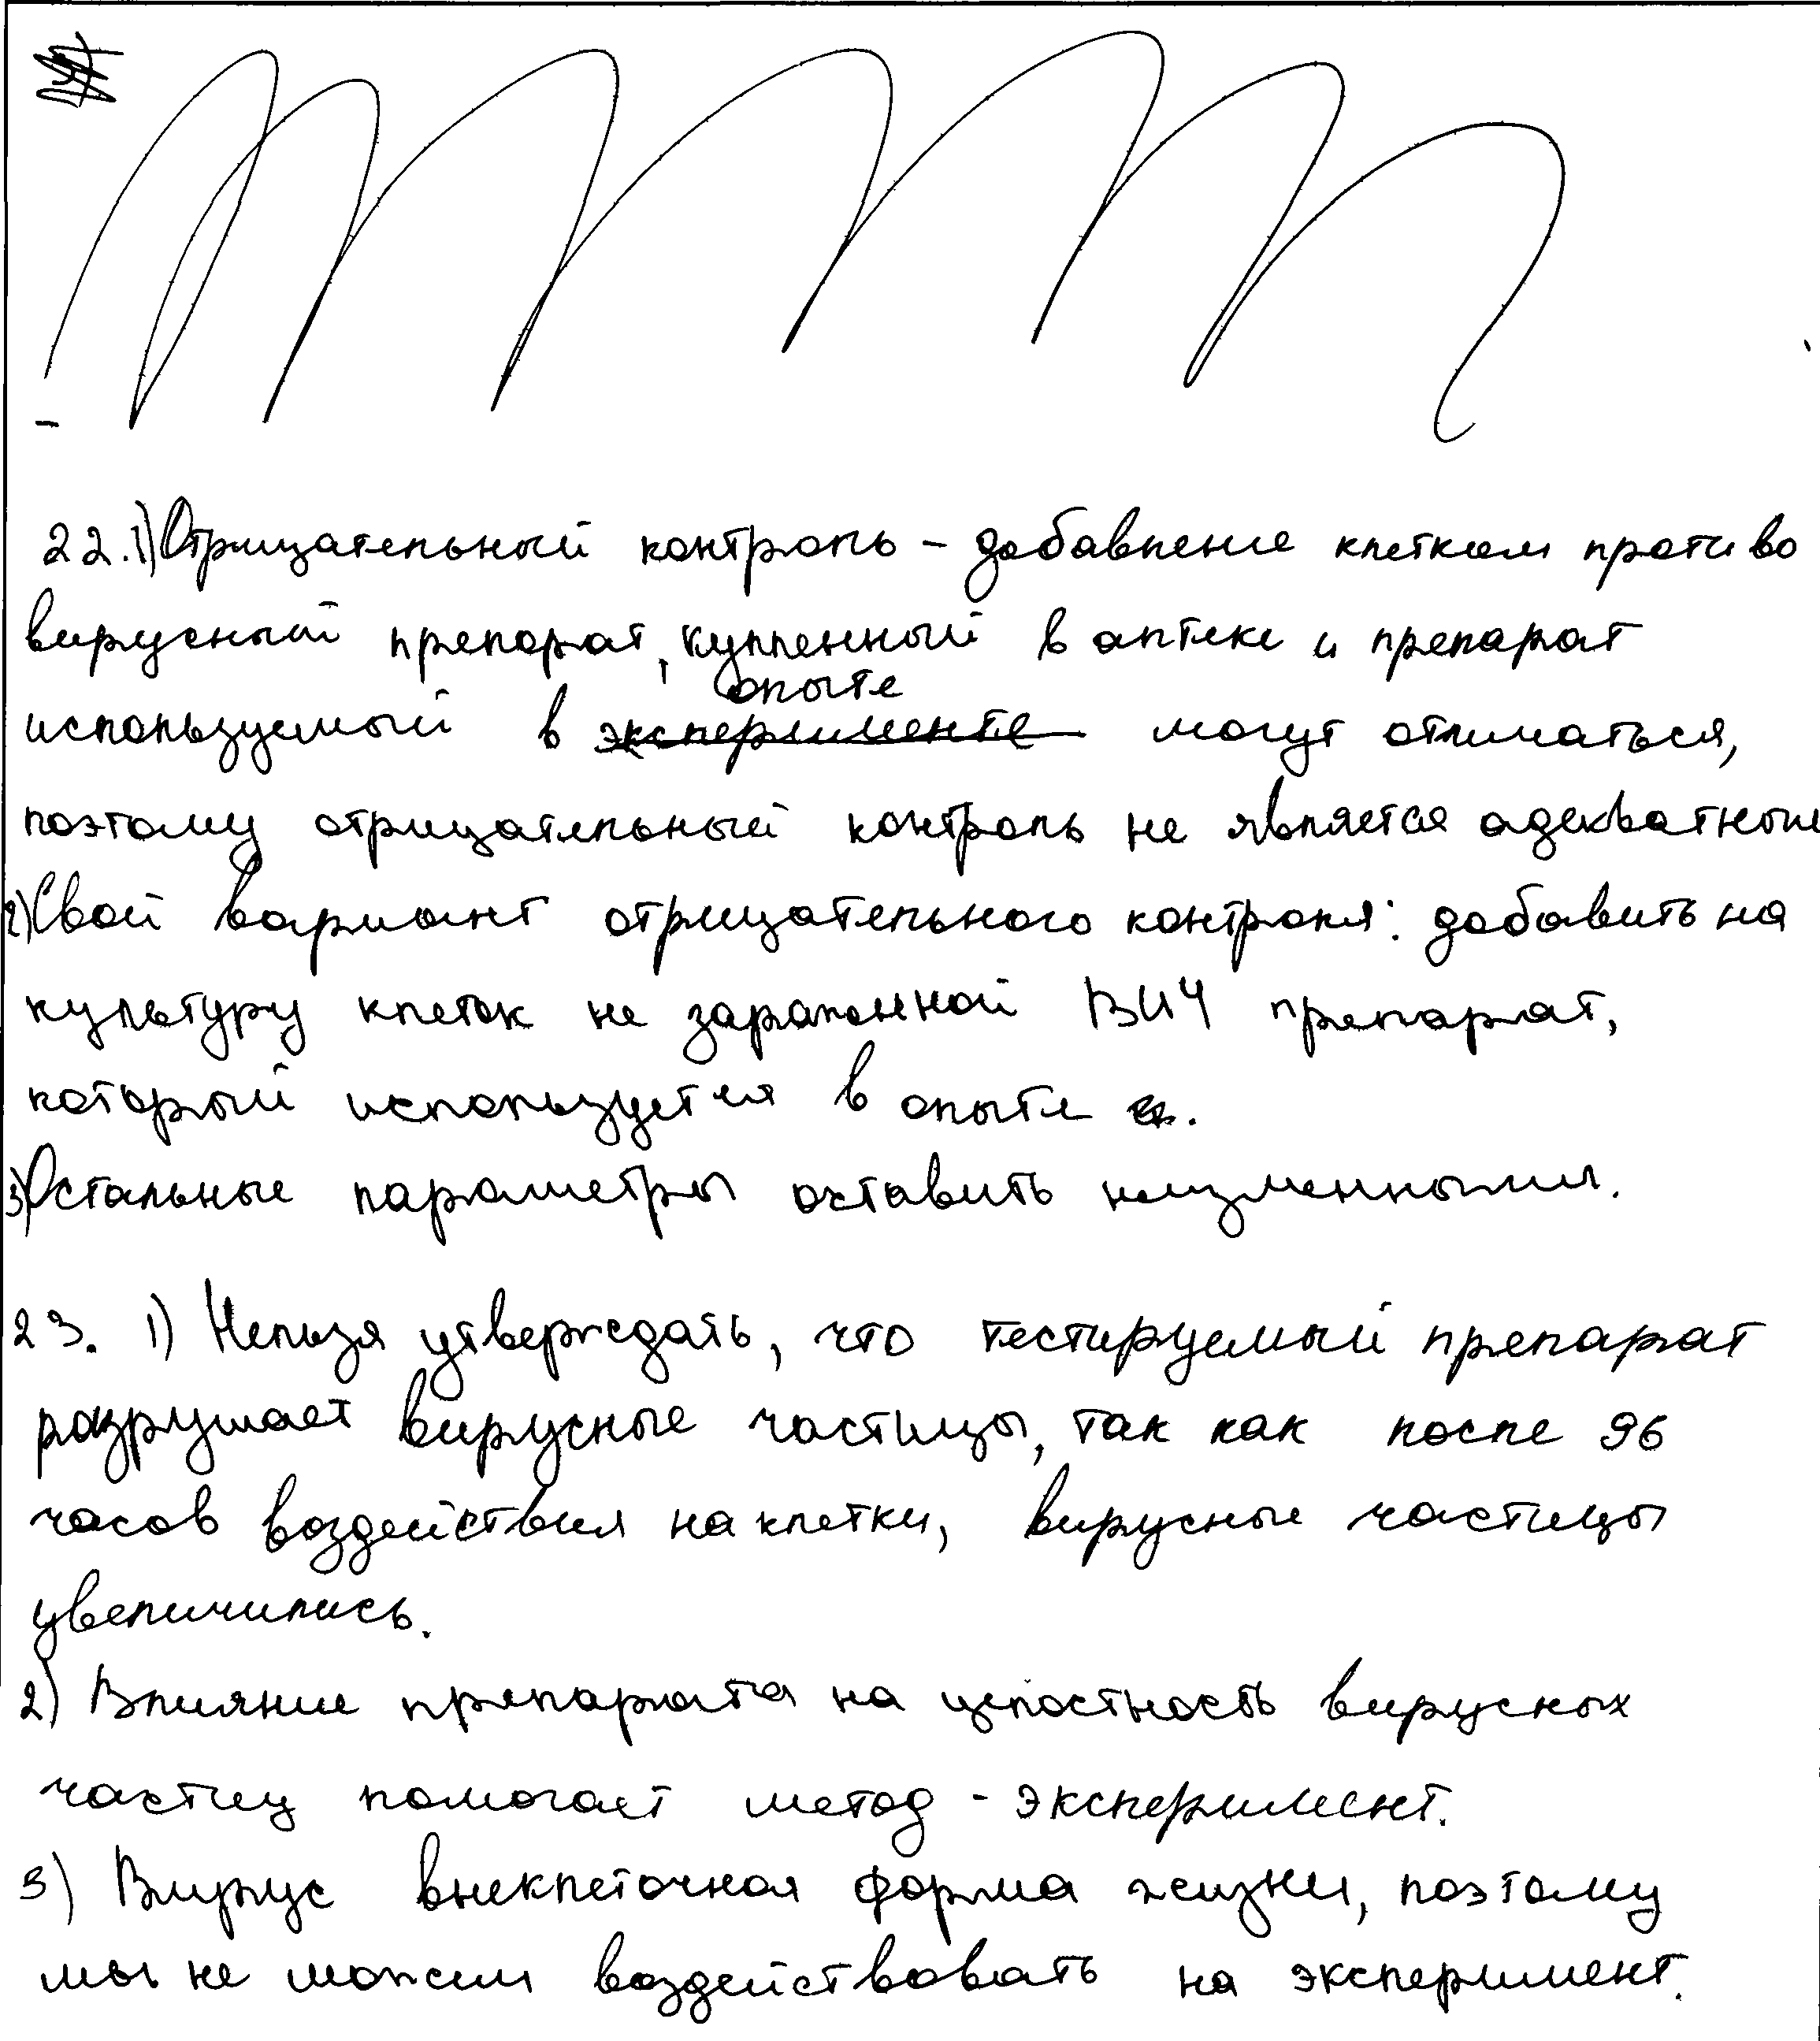 22. 1) Отрицательный контроль – добавление клеткам противо
вирусный препарат, купленный в аптеке и препарат
опыте
используемый в эксперименте могут отличаться,
поэтому отрицательный контроль не является адекватным
2) Свой вариант отрицательного контроля: добавить на
культуру клеток не зараженной ВИЧ препарат,
который используется в опыте.
3) Остальные параметры оставить неизменными.
23. 1) Нельзя утверждать, что тестируемый препарат
разрушает вирусные частицы, так как после 96
часов воздействия на клетки, вирусные частицы
увеличились.
2) Влияние препарата на целостность вирусных
частиц помогает метод - эксперимент.
3) Вирус внеклеточная форма жизни, поэтому
мы не можем воздействовать на эксперимент.